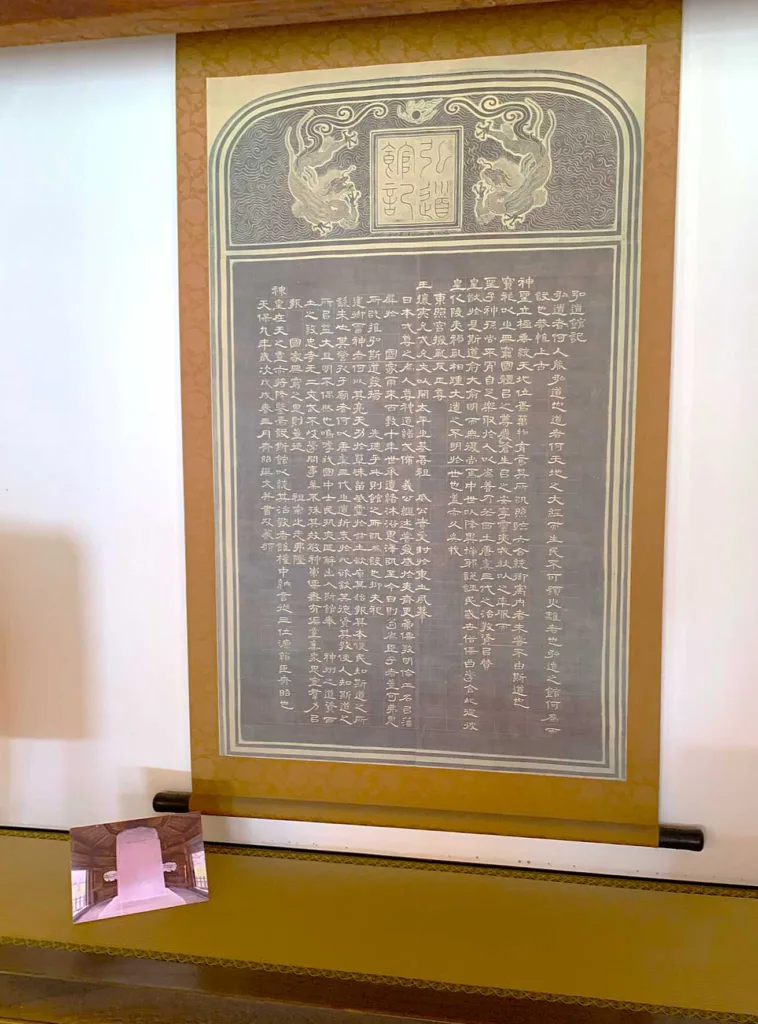 弘道
館記
弘道館記
弘道者何人能弘道也道者何天地之大經而生民不可須臾離者也弘道之館何為而
設也恭惟上古
神聖立極垂統天地位焉萬物育焉其所以照臨六合統御寓內者未嘗不由斯道也
寶祚以之無窮國體以之尊嚴蒼生以之安寧蠻夷戎狄以之率服而
聖子神孫尚不肯自足樂取於人以為善乃若西土唐虞三代之治教資以贊
皇猷於是斯道愈大愈明而無復尚焉中世以降異端邪說誣民惑世俗儒曲學舍此從彼
皇化陵夷禍亂相踵大道之不明於世也蓋亦久矣我
東照宮撥亂反正尊
王攘夷允武允文以開太平之基吾祖 威公實受封於東土夙慕
日本武尊之為人尊神道繕武備 義公繼述嘗發感於夷齊更崇儒教明倫正名以藩
屏於 國家爾來百數十年世承遺緒沐浴恩澤以至今日則苟為臣子者豈可弗思
所以推弘斯道發揚 先德乎此則館之所以為設也抑夫祀
建御雷神者何以其亮天功於草昧留威靈於茲土欲原其始報其本使民知斯道之所
繇來也其營孔子廟者何以唐虞三代之道折衷於此欲欽其德資其教使人知斯道之
所以益大且明不偶然也嗚呼我國中士民夙夜匪解出入斯館奉 神州之道資西
土之教忠孝无二文武不岐學問事業不殊其效敬神崇儒無有偏黨集衆思宣羣力以
報 國家無窮之恩則豈徒 祖宗之志弗墜
神皇在天之靈亦將降鑒焉設斯館以統其治教者誰權中納言從三位源朝臣齊昭也
天保九年歲次戊戌春三月齊昭撰文并書及篆額